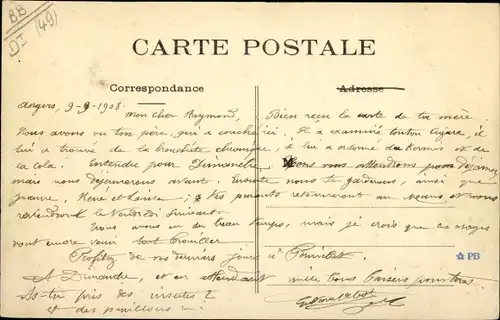 BB
DI (49)
CARTE POSTALE
Correspondance
Adresse
Angers, 9-9-1908.
Mon cher Raymond, Bien reçu la carte de ta mère.
Nous avons vu ton père, qui a couché ici. Il a examiné tonton, il
lui a trouvé de la bronchite chronique, il lui a ordonné du Kermès et de
la cola. Entendre pour Dimanche. Nous vous attendrons pour déjeuner
mais nous déjeunerons avant. Ensuite nous te garderons, ainsi que
Jeanne, René et Louise; tes parents retourneront au Mans et nous
reviendront le Vendredi suivant.
Nous avons eu du beau temps, mais je crois que les orages
vont encore venir tout troubler.
Profitez de vos derniers jours à
A Dimanche, et en attendant mille bons baisers pour tous.
As-tu pris des insectes ?
et des papillons ?
PB